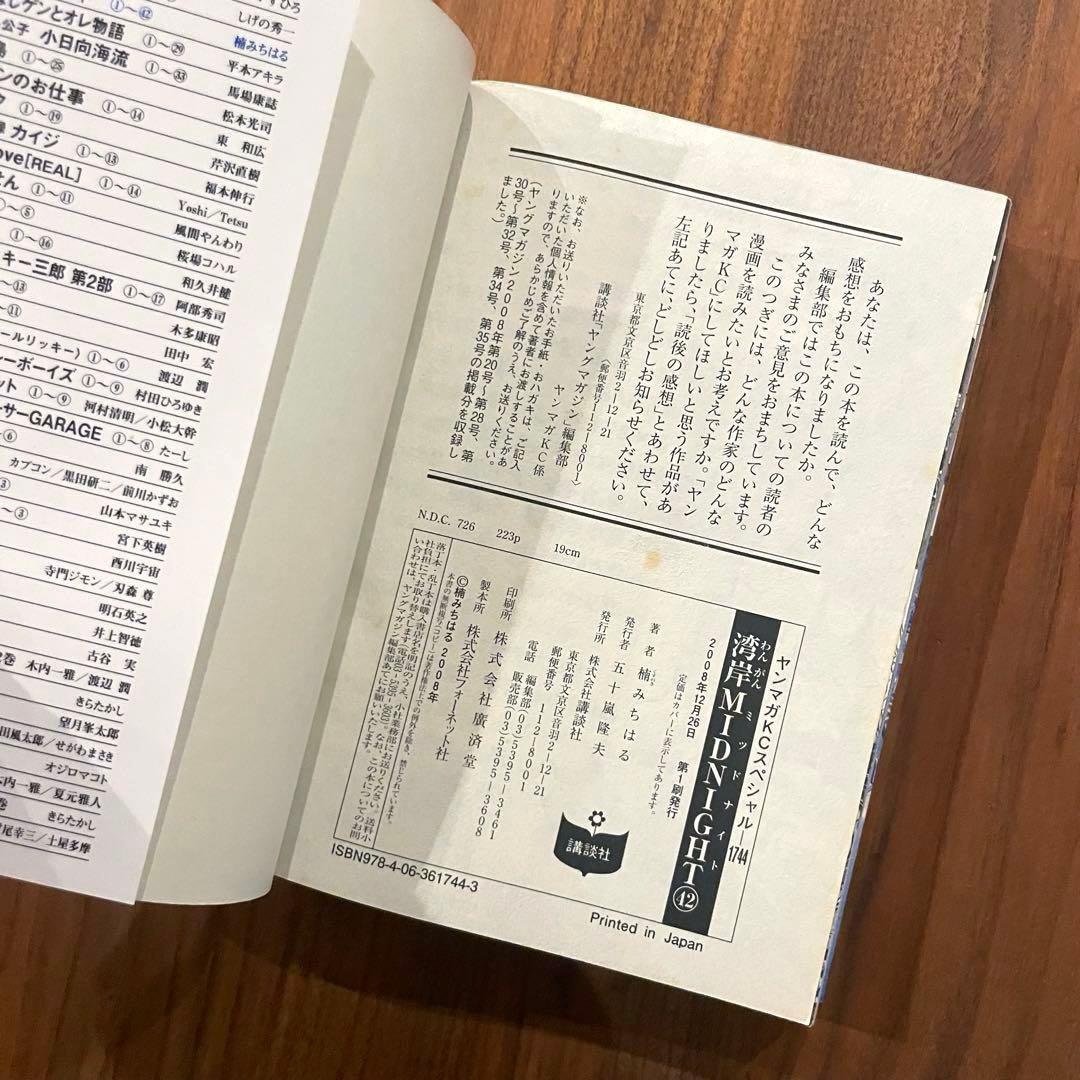 ①〜㊷
しげの秀一
ゲンとオレ物語 ①〜㉙
楠みちはる
公子 小日向海流 ①〜㉝
平本アキラ
島 ①〜㉕
馬場康誌
ンのお仕事 ①〜⑭
松本光司
ク ①〜⑲
東 和広
カイジ ①〜⑬
芹沢直樹
ove[REAL] ①〜⑭
福本伸行
せん ①〜⑪
Yoshi/Tetsu
〜⑧
風間やんわり
①〜⑯
桜場コハル
キー三郎 第2部 ①〜⑰
和久井健
〜⑬
阿部秀司
〜⑪
木多康昭
ールリッキー)①〜⑥
田中 宏
ィーボーイズ ①〜⑨
渡辺 潤
ット ①〜⑨
村田ひろゆき
ーサーGARAGE ①〜⑧
河村清明/小松大幹
〜⑥
たーし
南 勝久
カプコン/黒田研二/前川かずお
③
山本マサユキ
〜③
宮下英樹
西川宇宙
寺門ジモン/刃森 尊
明石英之
井上智徳
古谷 実
巻 木内一雅/渡辺 潤
きらたかし
望月峯太郎
田風太郎/せがわまさき
オジロマコト
木内一雅/夏元雅人
巻 きらたかし
尾幸三/土屋多摩
あなたは、この本を読んで、どんな
感想をおもちになりましたか。
編集部ではこの本についての読者の
みなさまのご意見をおまちしています。
このつぎには、どんな作家のどんな
漫画を読みたいとお考えですか。「ヤン
マガKC」にしてほしいと思う作品があ
りましたら、「読後の感想」とあわせて、
左記あてに、どしどしお知らせください。
東京都文京区音羽2-12-21
(郵便番号112-8001)
講談社「ヤングマガジン」編集部
ヤンマガKC係
※なお、お送りいただいたお手紙・おハガキは、ご記入
いただいた個人情報を含めて著者にお渡しすることがあ
りますので、あらかじめご了解のうえ、お送りください。
(ヤングマガジン2008年第20号〜第28号、第
30号〜第32号、第34号、第35号の掲載分を収録し
ました。)
N.D.C. 726 223p 19cm
ヤンマガKCスペシャル—1744
わんがん ミッドナイト
湾岸MIDNIGHT㊷
2008年12月26日 第1刷発行
定価はカバーに表示してあります。
著者 楠みちはる
発行者 五十嵐隆夫
発行所 株式会社講談社
東京都文京区音羽2-12-21
郵便番号 112-8001
電話 編集部(03)5395-3461
販売部(03)5395-3608
印刷所 株式会社廣済堂
製本所 株式会社フォーネット社
©楠みちはる 2008年
本書の無断複写(コピー)は著作権法上での例外を除き、禁じられています。
落丁本・乱丁本は購入書店名を明記のうえ、小社業務部にお送りください。送料小
社負担にてお取り替えします(電話03-5395-3603)。なお、この本についてのお問
い合わせは、ヤングマガジン編集部あてにお願いいたします。
講談社
ISBN978-4-06-361744-3
Printed in Japan